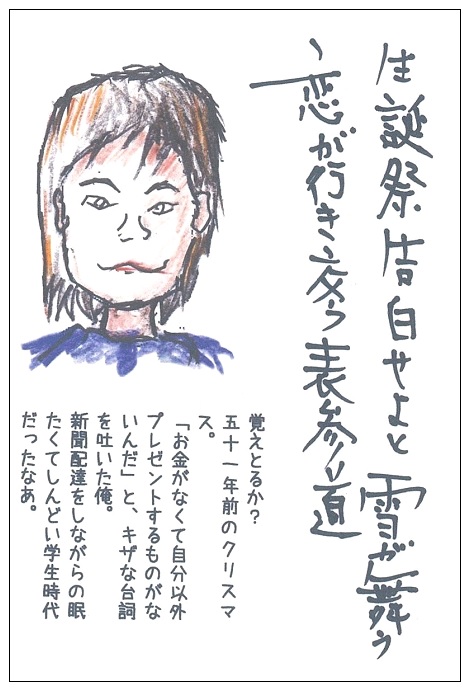 生誕祭告白せよと雪が舞う
恋が行き交う表参道
覚えとるか?
五十一年前のクリスマ
ス。
「お金がなくて自分以外
プレゼントするものがな
いんだ」と、キザな台詞
を吐いた俺。
新聞配達をしながらの眠
たくてしんどい学生時代
だったなあ。